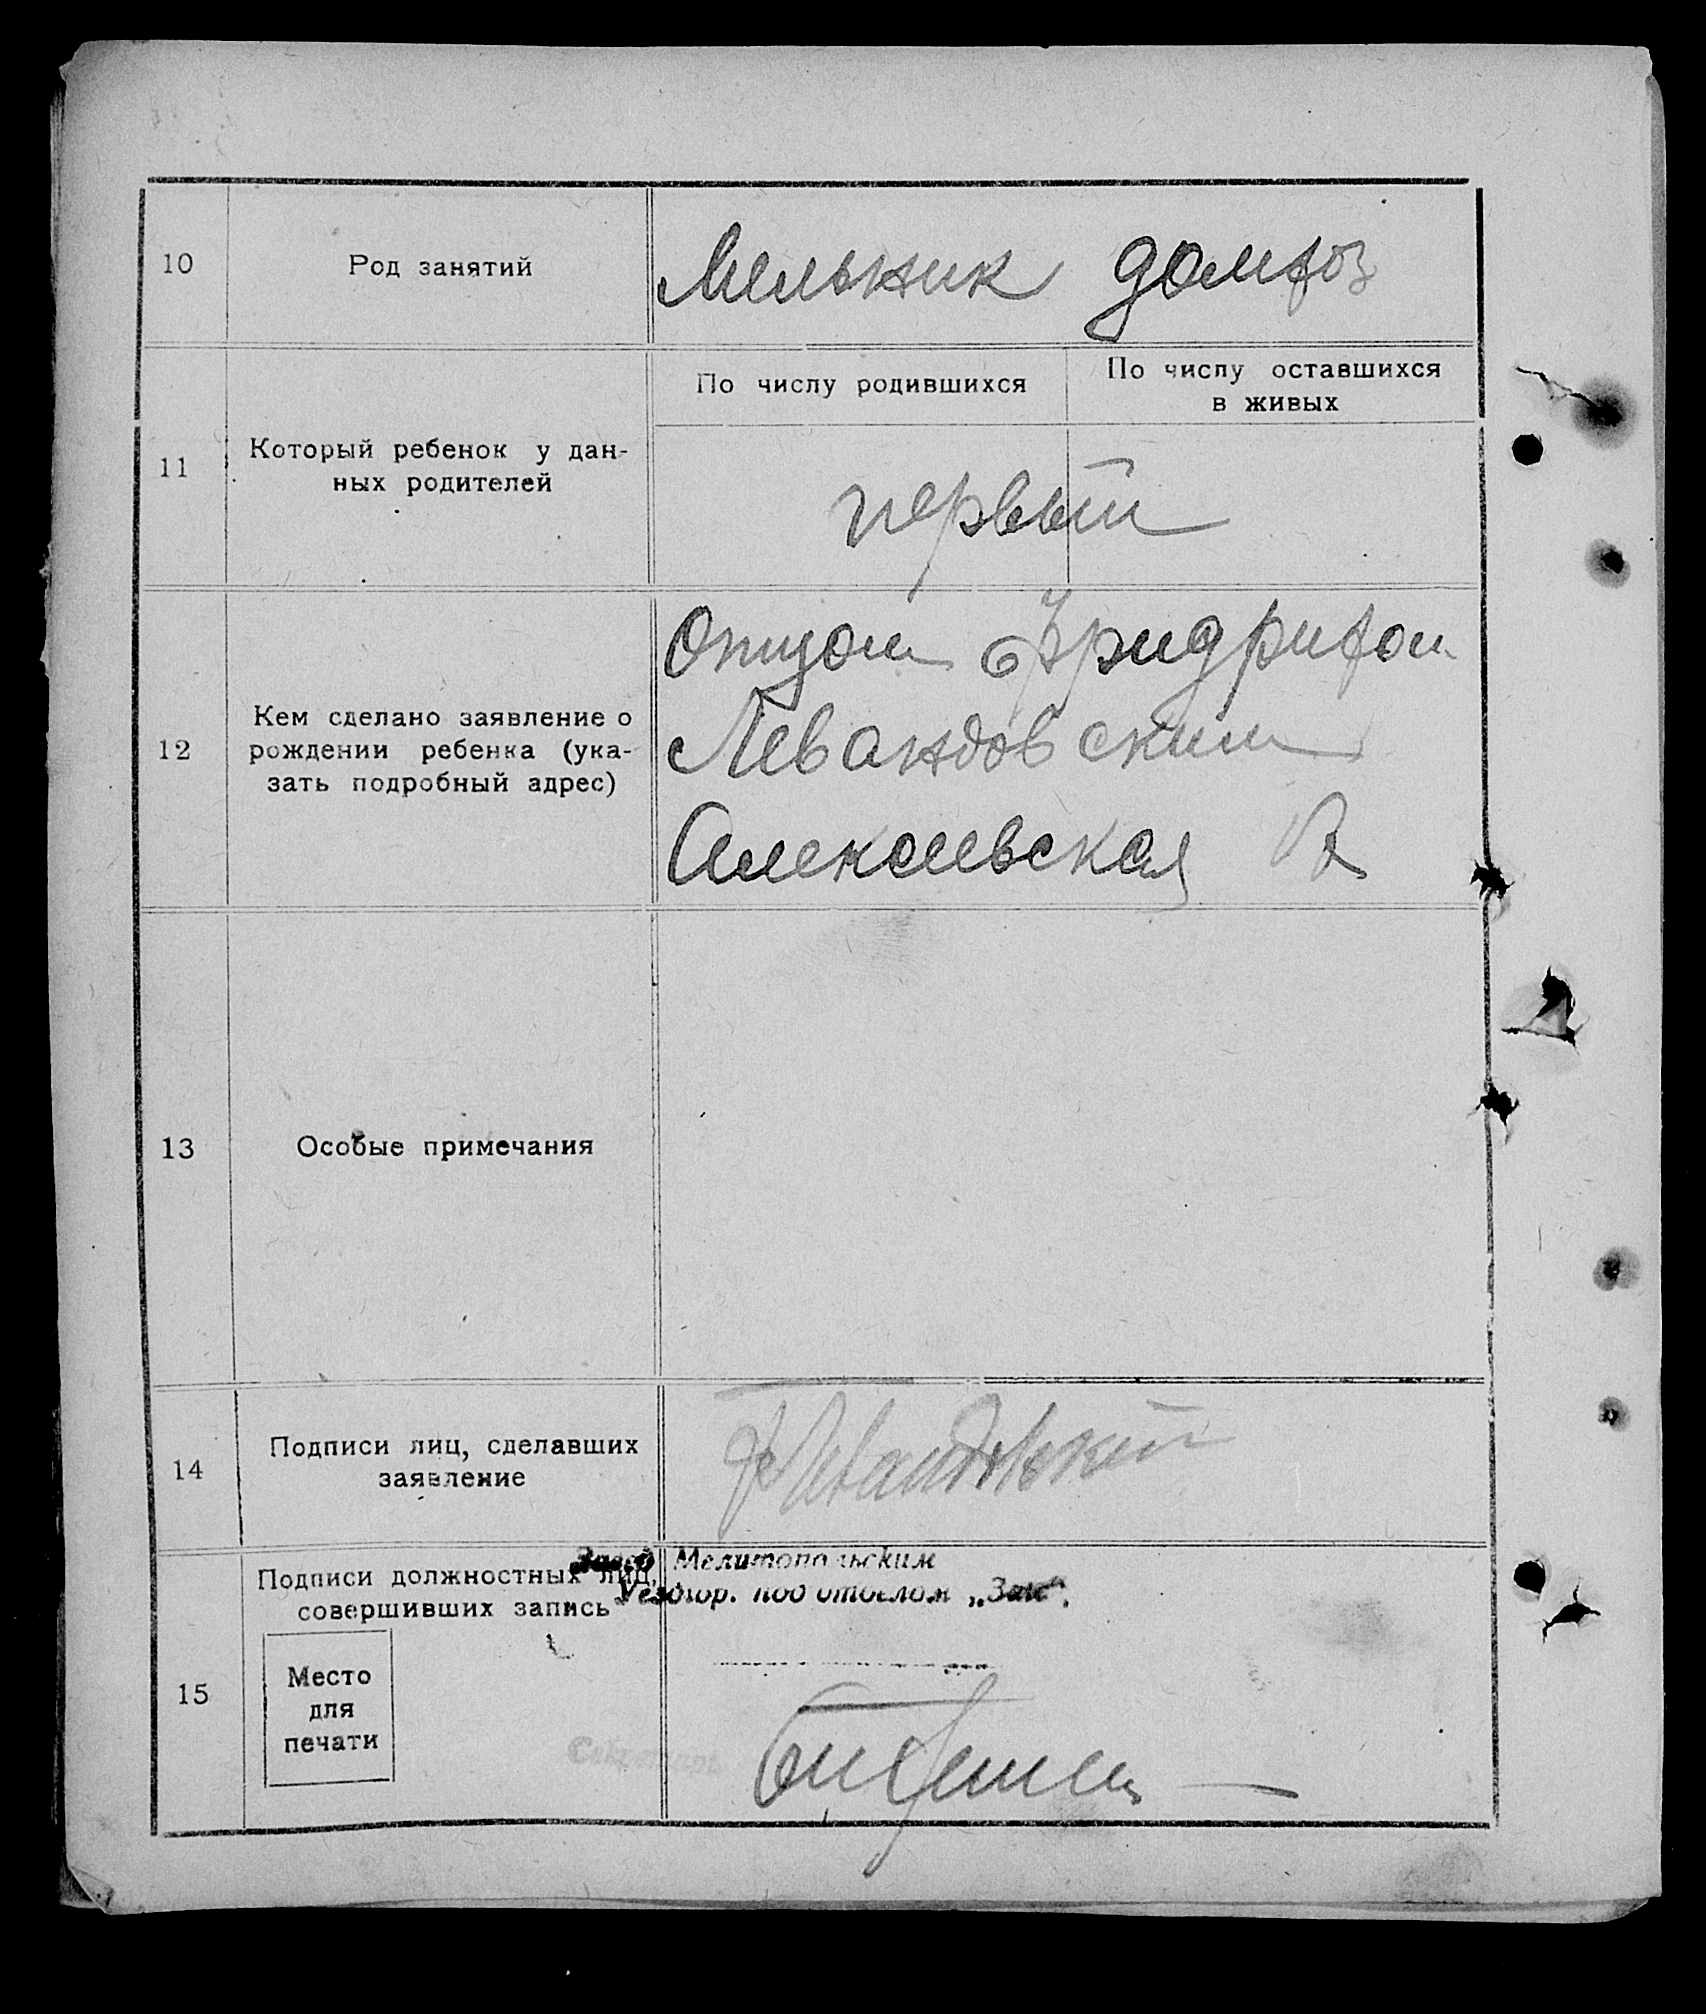 10 Род занятий Мельник домхоз
По числу родившихся По числу оставшихся
в живых
11 Который ребенок у дан-
ных родителей
первый
12 Кем сделано заявление о
рождении ребенка (ука-
зать подробный адрес)
Отцом Фридрихом
Левандовским
Алексеевская
13 Особые примечания
14 Подписи лиц, сделавших
заявление
Ф Левандовский
Завед. Мелитопольским
Уездгор. под отделом „Загс".
15 Подписи должностных лиц,
совершивших запись
Место
для
печати
Секретарь